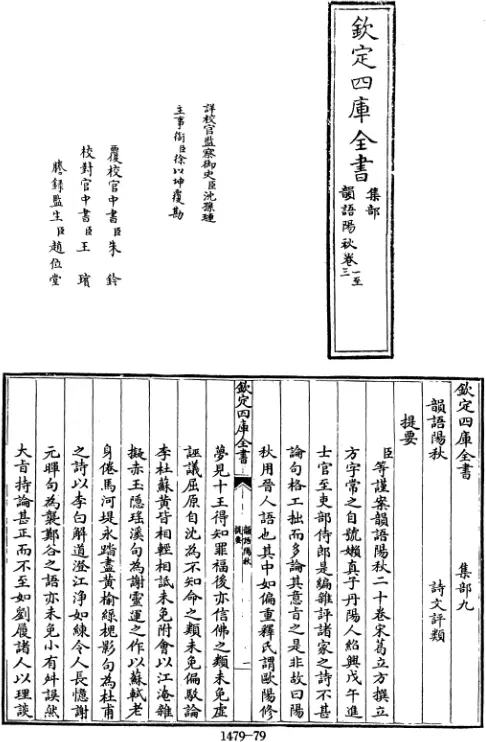 欽定四庫全書
集部
韻語陽秋卷一至三
詳校官監察御史臣沈孫璉
主事銜臣徐以坤覆勘
覆校官中書臣朱鈐
校對官中書臣王璸
謄錄監生臣趙位堂
欽定四庫全書 集部九
韻語陽秋 詩文評類
提要
臣等謹案韻語陽秋二十卷宋葛立方撰立
方字常之自號嬾真子丹陽人紹興戊午進
士官至吏部侍郎是編雜評諸家之詩不甚
論句格工拙而多論其意旨之是非故曰陽
秋用晉人語也其中如偏重釋氏謂歐陽修
欽定四庫全書
韻語陽秋
提要
一
夢見十王得知罪福後亦信佛之類未免虛
誣議屈原自沈為不知命之類未免偏駮論
李杜蘇黃皆相輕相詆未免附會以江淹雜
擬赤玉隱瑤溪句為謝靈運之作以蘇軾老
身倦馬河堤永踏盡黃榆綠槐影句為杜甫
之詩以李白解道澄江淨如練令人長憶謝
元暉句為襲鄭谷之語亦未免小有舛誤然
大旨持論甚正而不至如劉履諸人以理談
1479-79